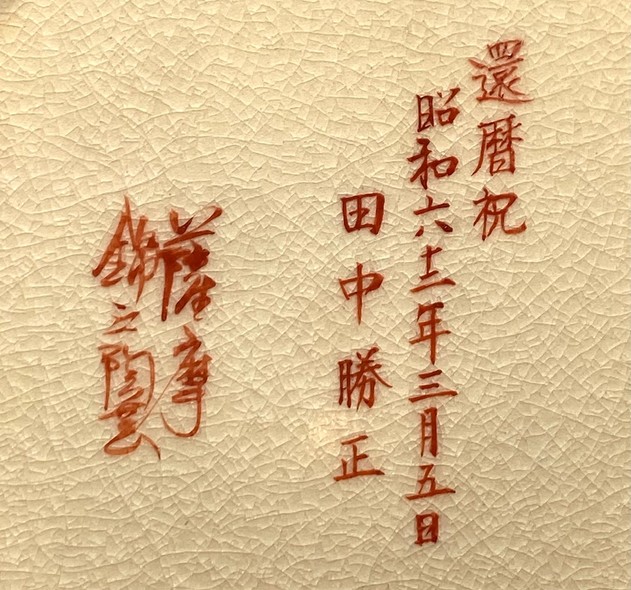 還暦祝
昭和六十二年三月五日
田中勝正
薩摩
錦之陶